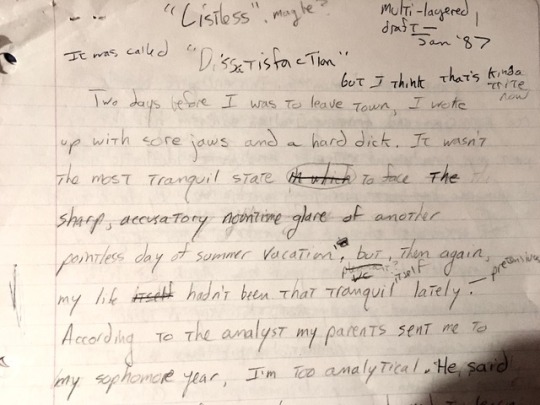 "Listless", maybe?
multi-layered
draft
Jan '87
It was called "Dissatisfaction"
but I think that's kinda
trite
now
Two days before I was to leave town, I woke
up with sore jaws and a hard dick. It wasn't
the most tranquil state in which to face the
sharp, accusatory noontime glare of another
pointless day of summer vacation, but, then again,
my life itself hadn't been that tranquil itself lately. — pretentious
According to the analyst my parents sent me to
my sophomore year, I'm too analytical. He said